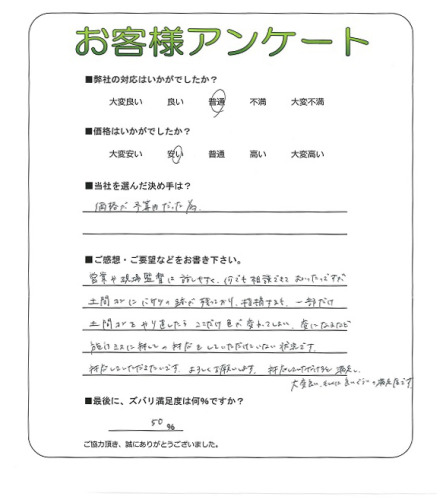 お客様アンケート
■弊社の対応はいかがでしたか？
大変良い 良い 普通 不満 大変不満
■価格はいかがでしたか？
大変安い 安い 普通 高い 大変高い
■当社を選んだ決め手は？
価格が予算内だった為
■ご感想・ご要望などをお書き下さい。
営業や現場監督に話しやすく、何でも相談できて
土間コンに の跡が残っており、指摘すると、一部だけ
土間コンをやり直したら ここだけ色が変わってしまい、
施工ミスに対しての対応をしていただけていない状況です。
対応していただきたいです。よろしくお願いします。
■最後に、ズバリ満足度は何%ですか？
50 %
ご協力頂き、誠にありがとうございました。